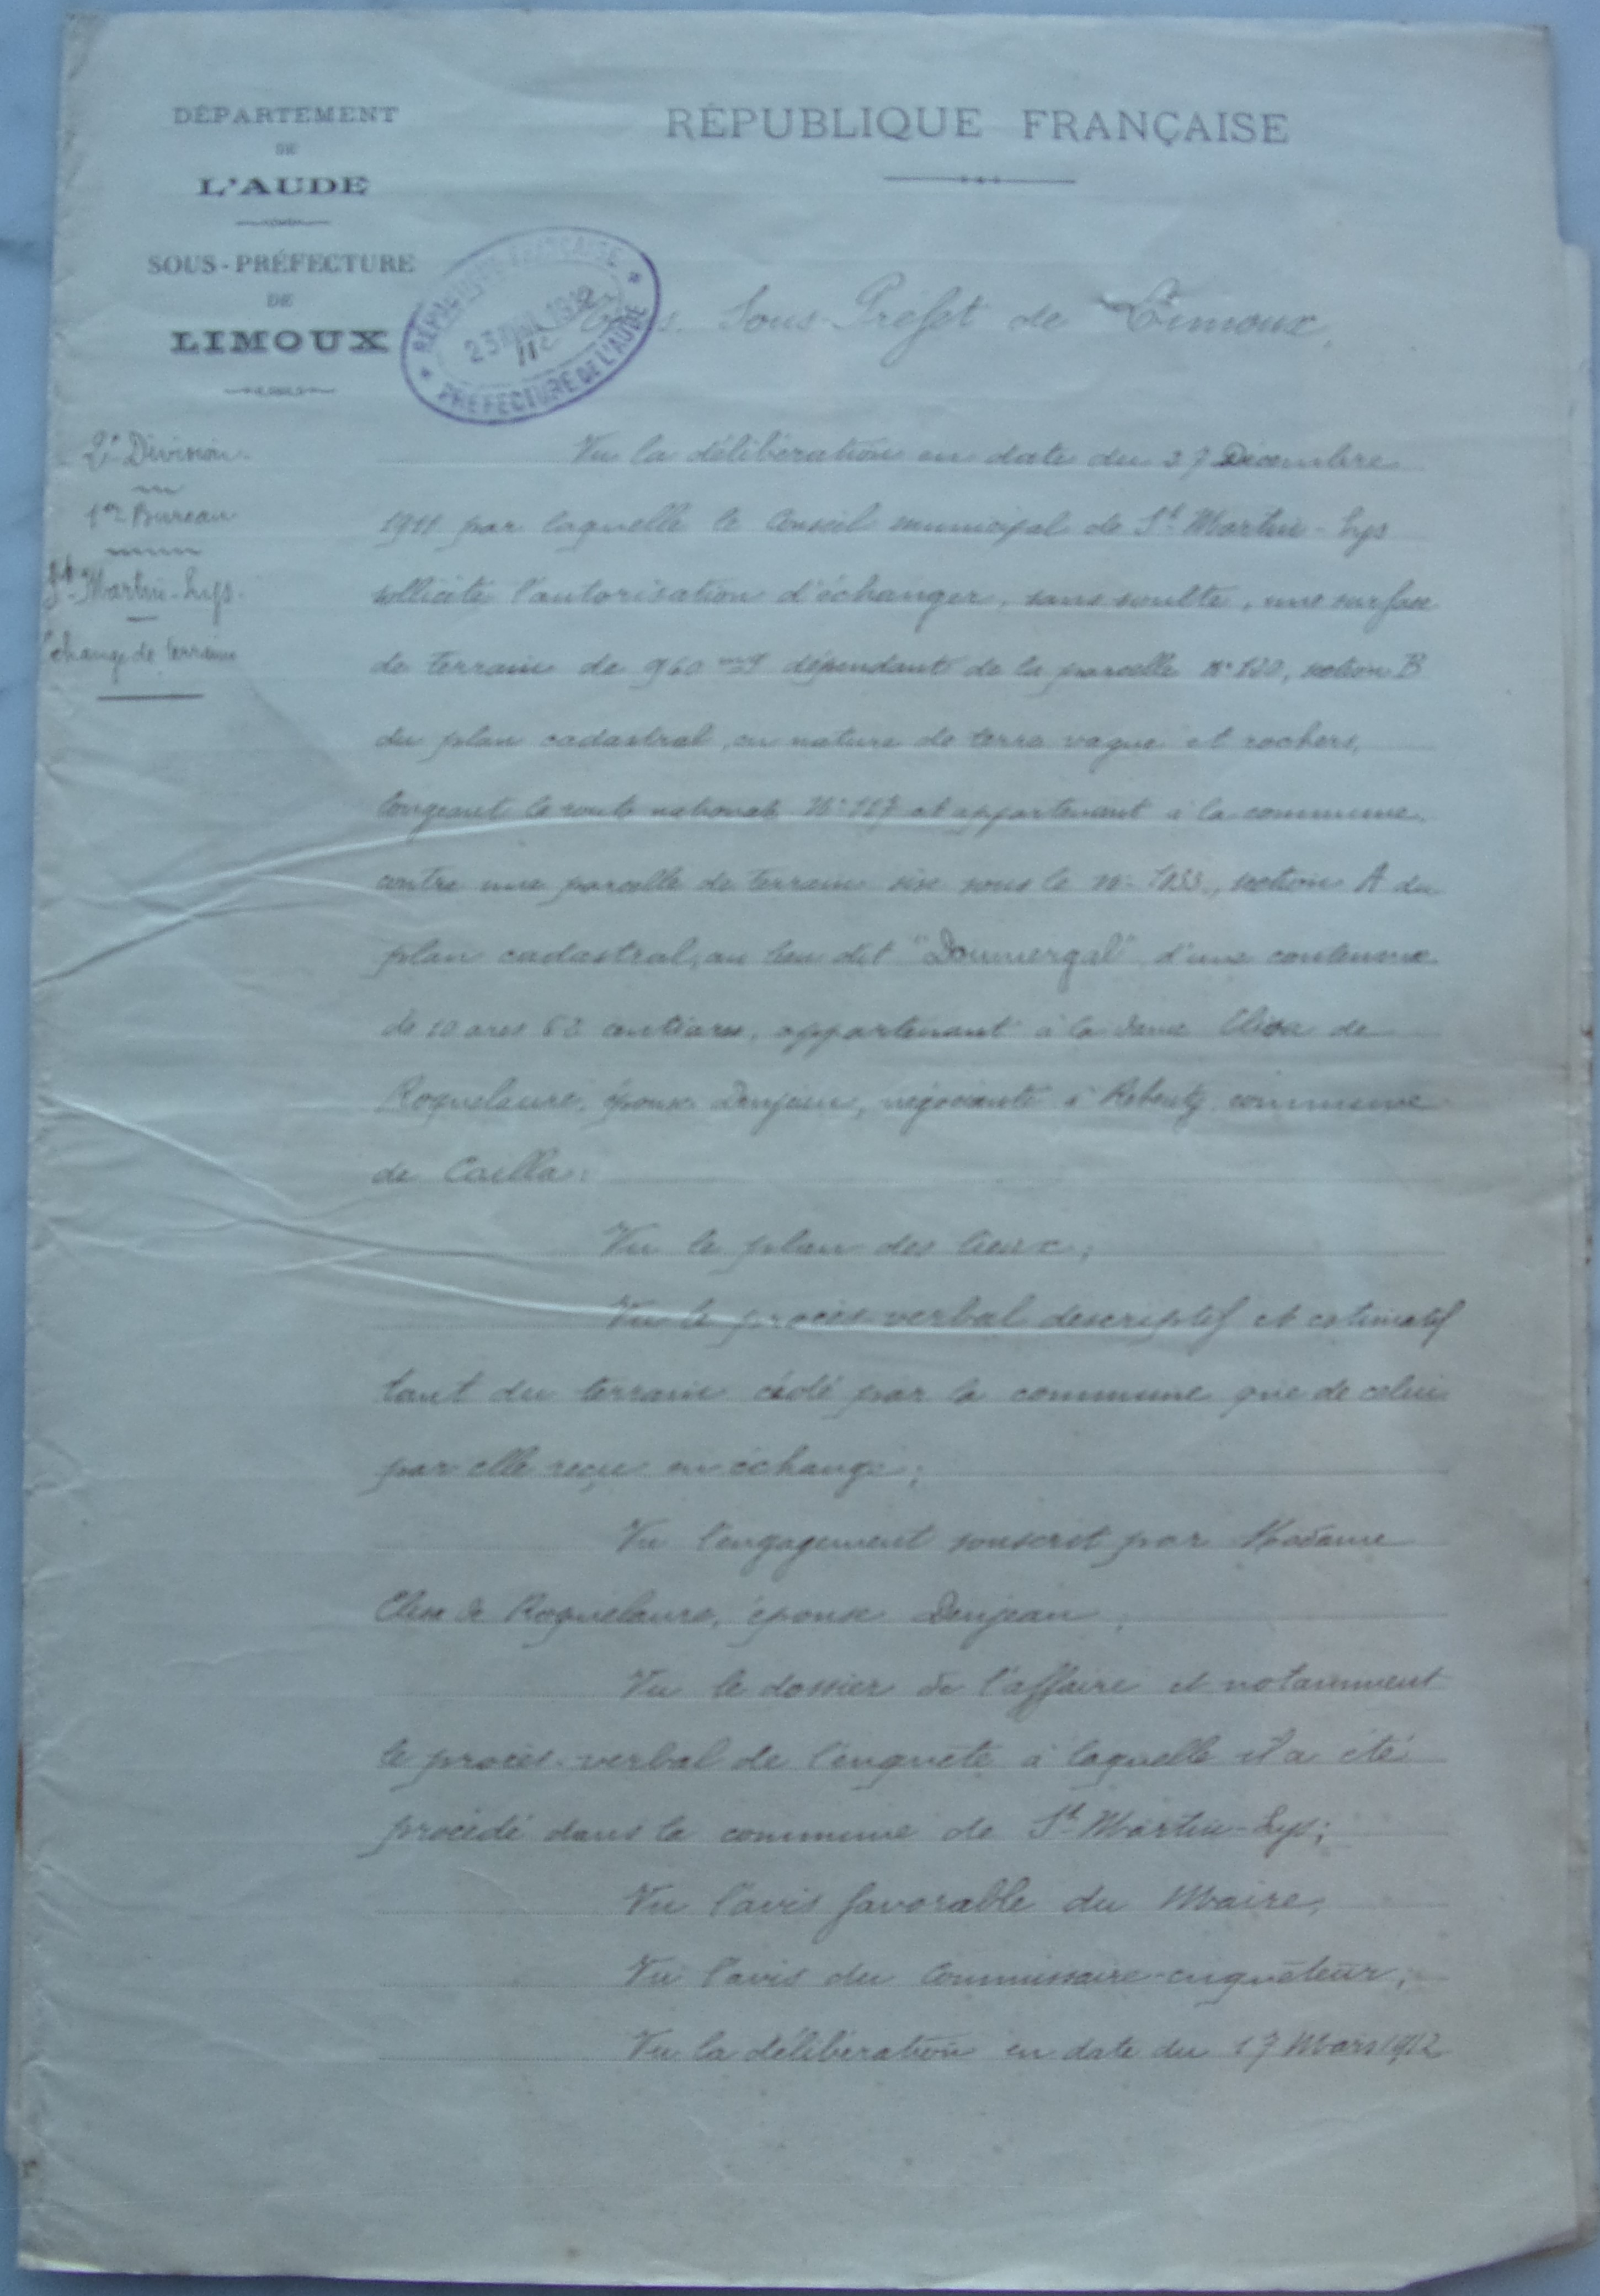 DÉPARTEMENT
DE
L'AUDE
SOUS-PRÉFECTURE
DE
LIMOUX
RÉPUBLIQUE FRANÇAISE
RÉPUBLIQUE FRANÇAISE
PRÉFECTURE DE L'AUDE
Sous-Préfet de Limoux,
2e Division
1er Bureau
St Martin-Lys.
Echange de terrains
Vu la délibération en date du 27 Décembre
1911 par laquelle le Conseil municipal de St Martin-Lys
sollicite l'autorisation d'échanger, sans soulte, une surface
de terrain de 960 dépendant de la parcelle n° 120, section B
du plan cadastral, en nature de terre vague et rochers,
longeant la route nationale N° 117 et appartenant à la commune,
contre une parcelle de terrain sise sous le n° 1033, section A du
plan cadastral, au lieu dit "Doumergal" d'une contenance
de 10 ares 62 centiares, appartenant à la dame Elisa de
Roquelaure, épouse Denjean, négociante à Rebenty, commune
de Cailla;
Vu le plan des lieux;
Vu le procès-verbal descriptif et estimatif
tant du terrain cédé par la commune que de celui
par elle reçu en échange;
Vu l'engagement souscrit par Madame
Elisa de Roquelaure, épouse Denjean;
Vu le dossier de l'affaire et notamment
le procès-verbal de l'enquête à laquelle il a été
procédé dans la commune de St Martin-Lys;
Vu l'avis favorable du Maire;
Vu l'avis du Commissaire-enquêteur;
Vu la délibération en date du 17 Mars 1912